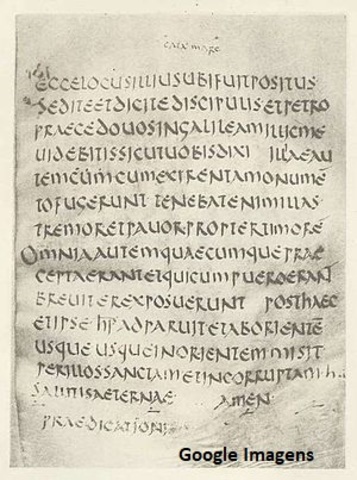 ECCE LOCUS ILLIUS UBI FUIT POSITUS
SED ITE ET DICITE DISCIPULIS ET PETRO
PRAECEDO UOS IN GALILEAM ILLIC ME
UIDEBITIS SICUT UOBIS DIXI ILLAE AU
TEM CUM CUM EXIRENT A MONUMĒ
TO FUGERUNT TENEBAT ENIM ILLAS
TREMOR ET PAUOR PROPTER TIMORĒ
OMNIA AUTEM QUAECUMQUE PRAE
CEPTA ERANT ET QUI CUM PUERO ERAN
BREUITER EXPOSUERUNT POSTHAEC
ET IPSE ADPARUIT ET AB ORIENTĒ
USQUE USQUE IN ORIENTEM MISIT
PER ILLOS SANCTAM ET INCORRUPTAM
SALUTIS AETERNAE AMEN
PRAEDICATIONIS
Google Imagens